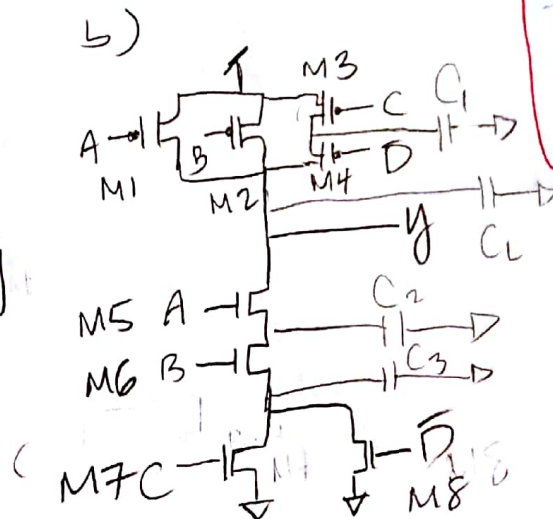 b)
M3
C
C1
A
B
D
M1
M2
M4
y
CL
M5 A
C2
M6 B
C3
M7 C
D̅
M8